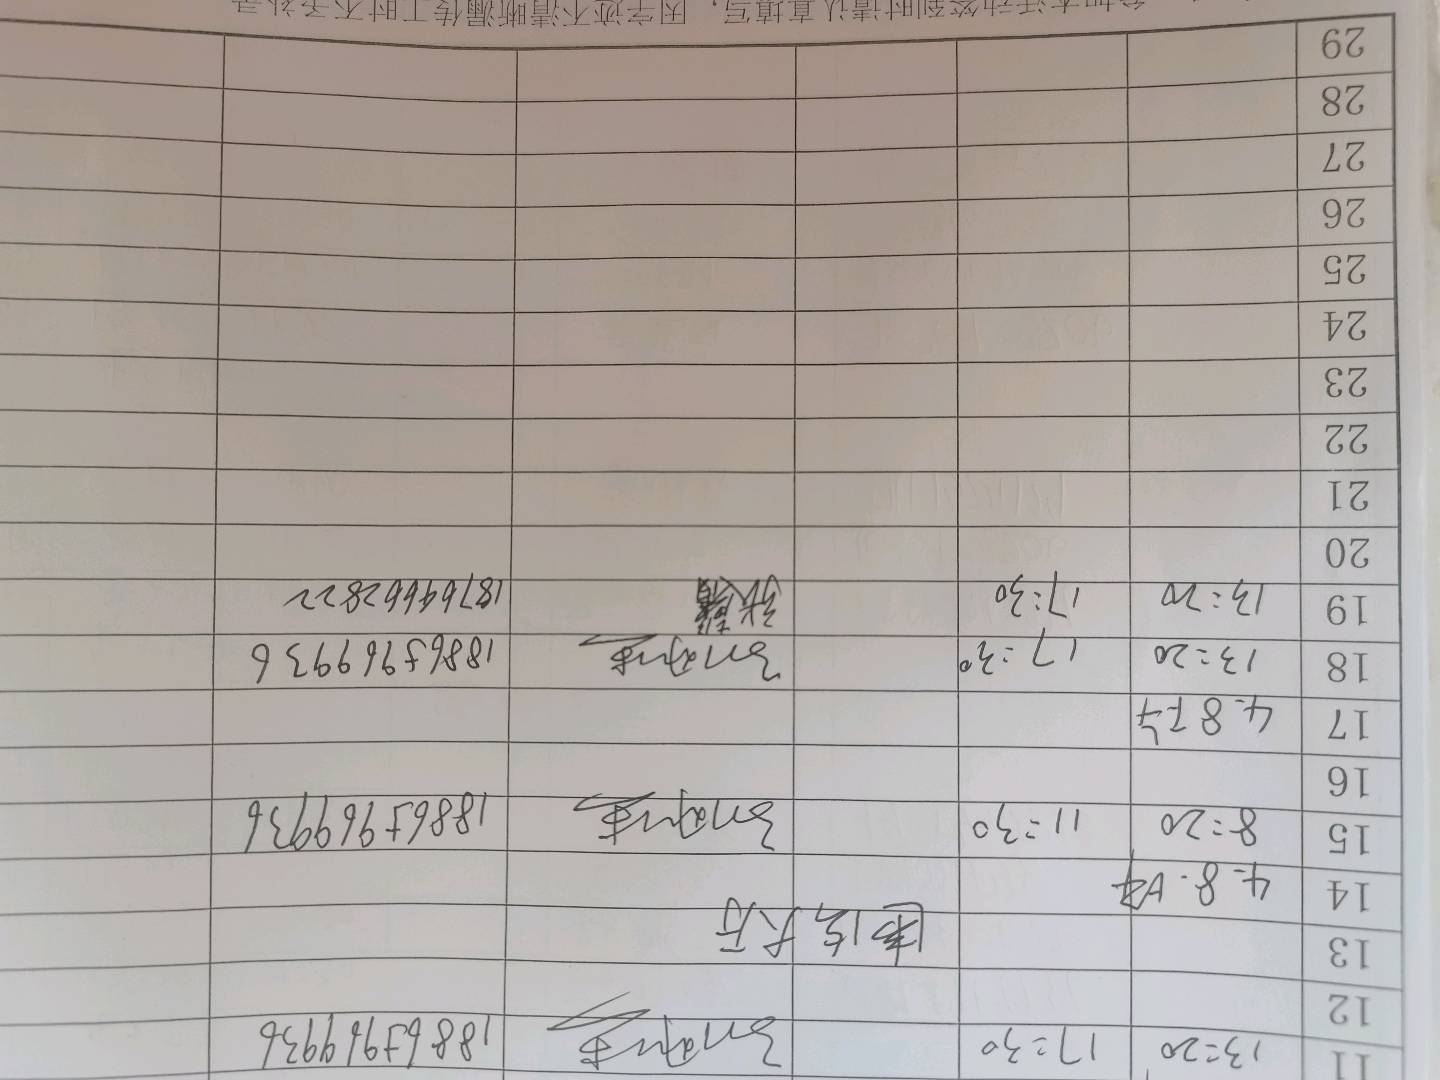 11 13=20 17=30 18865969936
12
13 大厅
14 4.8.上午
15 8=20 11=30 18865969936
16
17 4.8下午
18 13=20 17=30 18865969936
19 13=20 17=30 18764662822
20
21
22
23
24
25
26
27
28
29
参加本活动签到时请认真填写，因字迹不清晰漏传工时不予补录